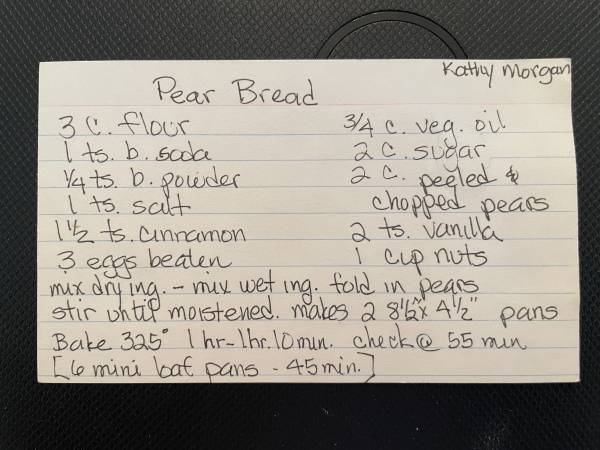 Kathy Morgan
Pear Bread
3 c. flour
1 ts. b. soda
1/4 ts. b. powder
1 ts. salt
1 1/2 ts. cinnamon
3 eggs beaten
3/4 c. veg. oil
2 c. sugar
2 c. peeled &
chopped pears
2 ts. vanilla
1 cup nuts
mix dry ing. - mix wet ing. fold in pears
stir until moistened. makes 2 8 1/2" x 4 1/2" pans
Bake 325° 1 hr-1hr.10min. check @ 55 min
[6 mini loaf pans - 45 min.]